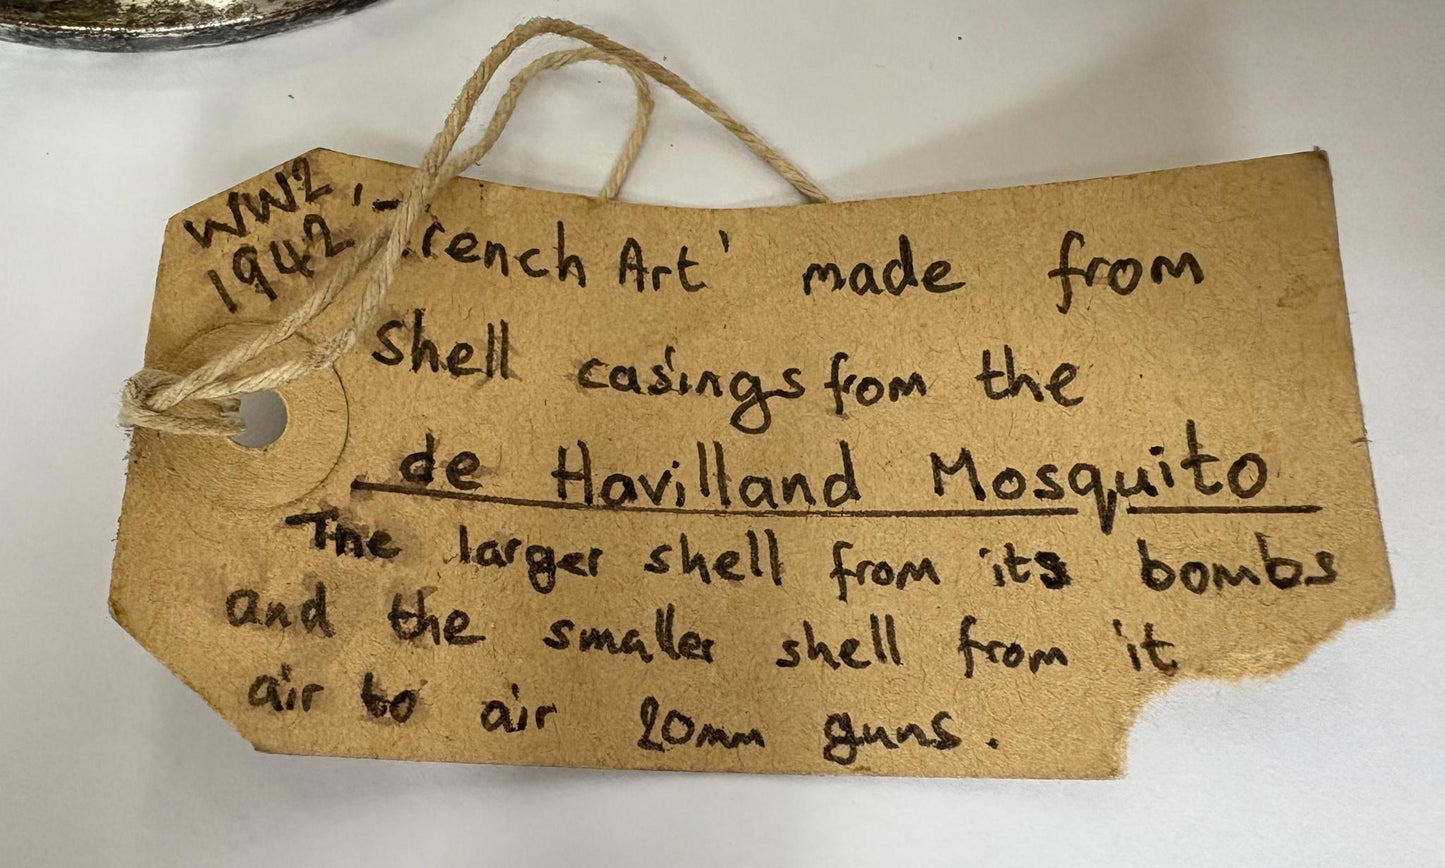 WW2
1942
'Trench Art' made from
Shell casings from the
de Havilland Mosquito
The larger shell from its bombs
and the smaller shell from it
air to air 20mm guns.